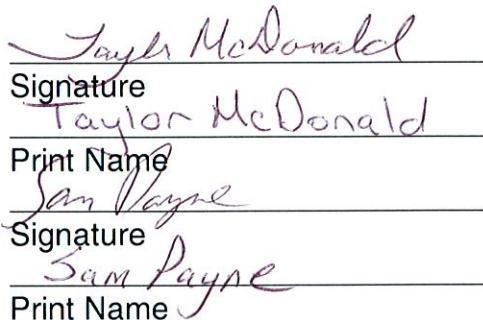 Taylor McDonald
Signature
Taylor McDonald
Print Name
Sam Payne
Signature
Sam Payne
Print Name